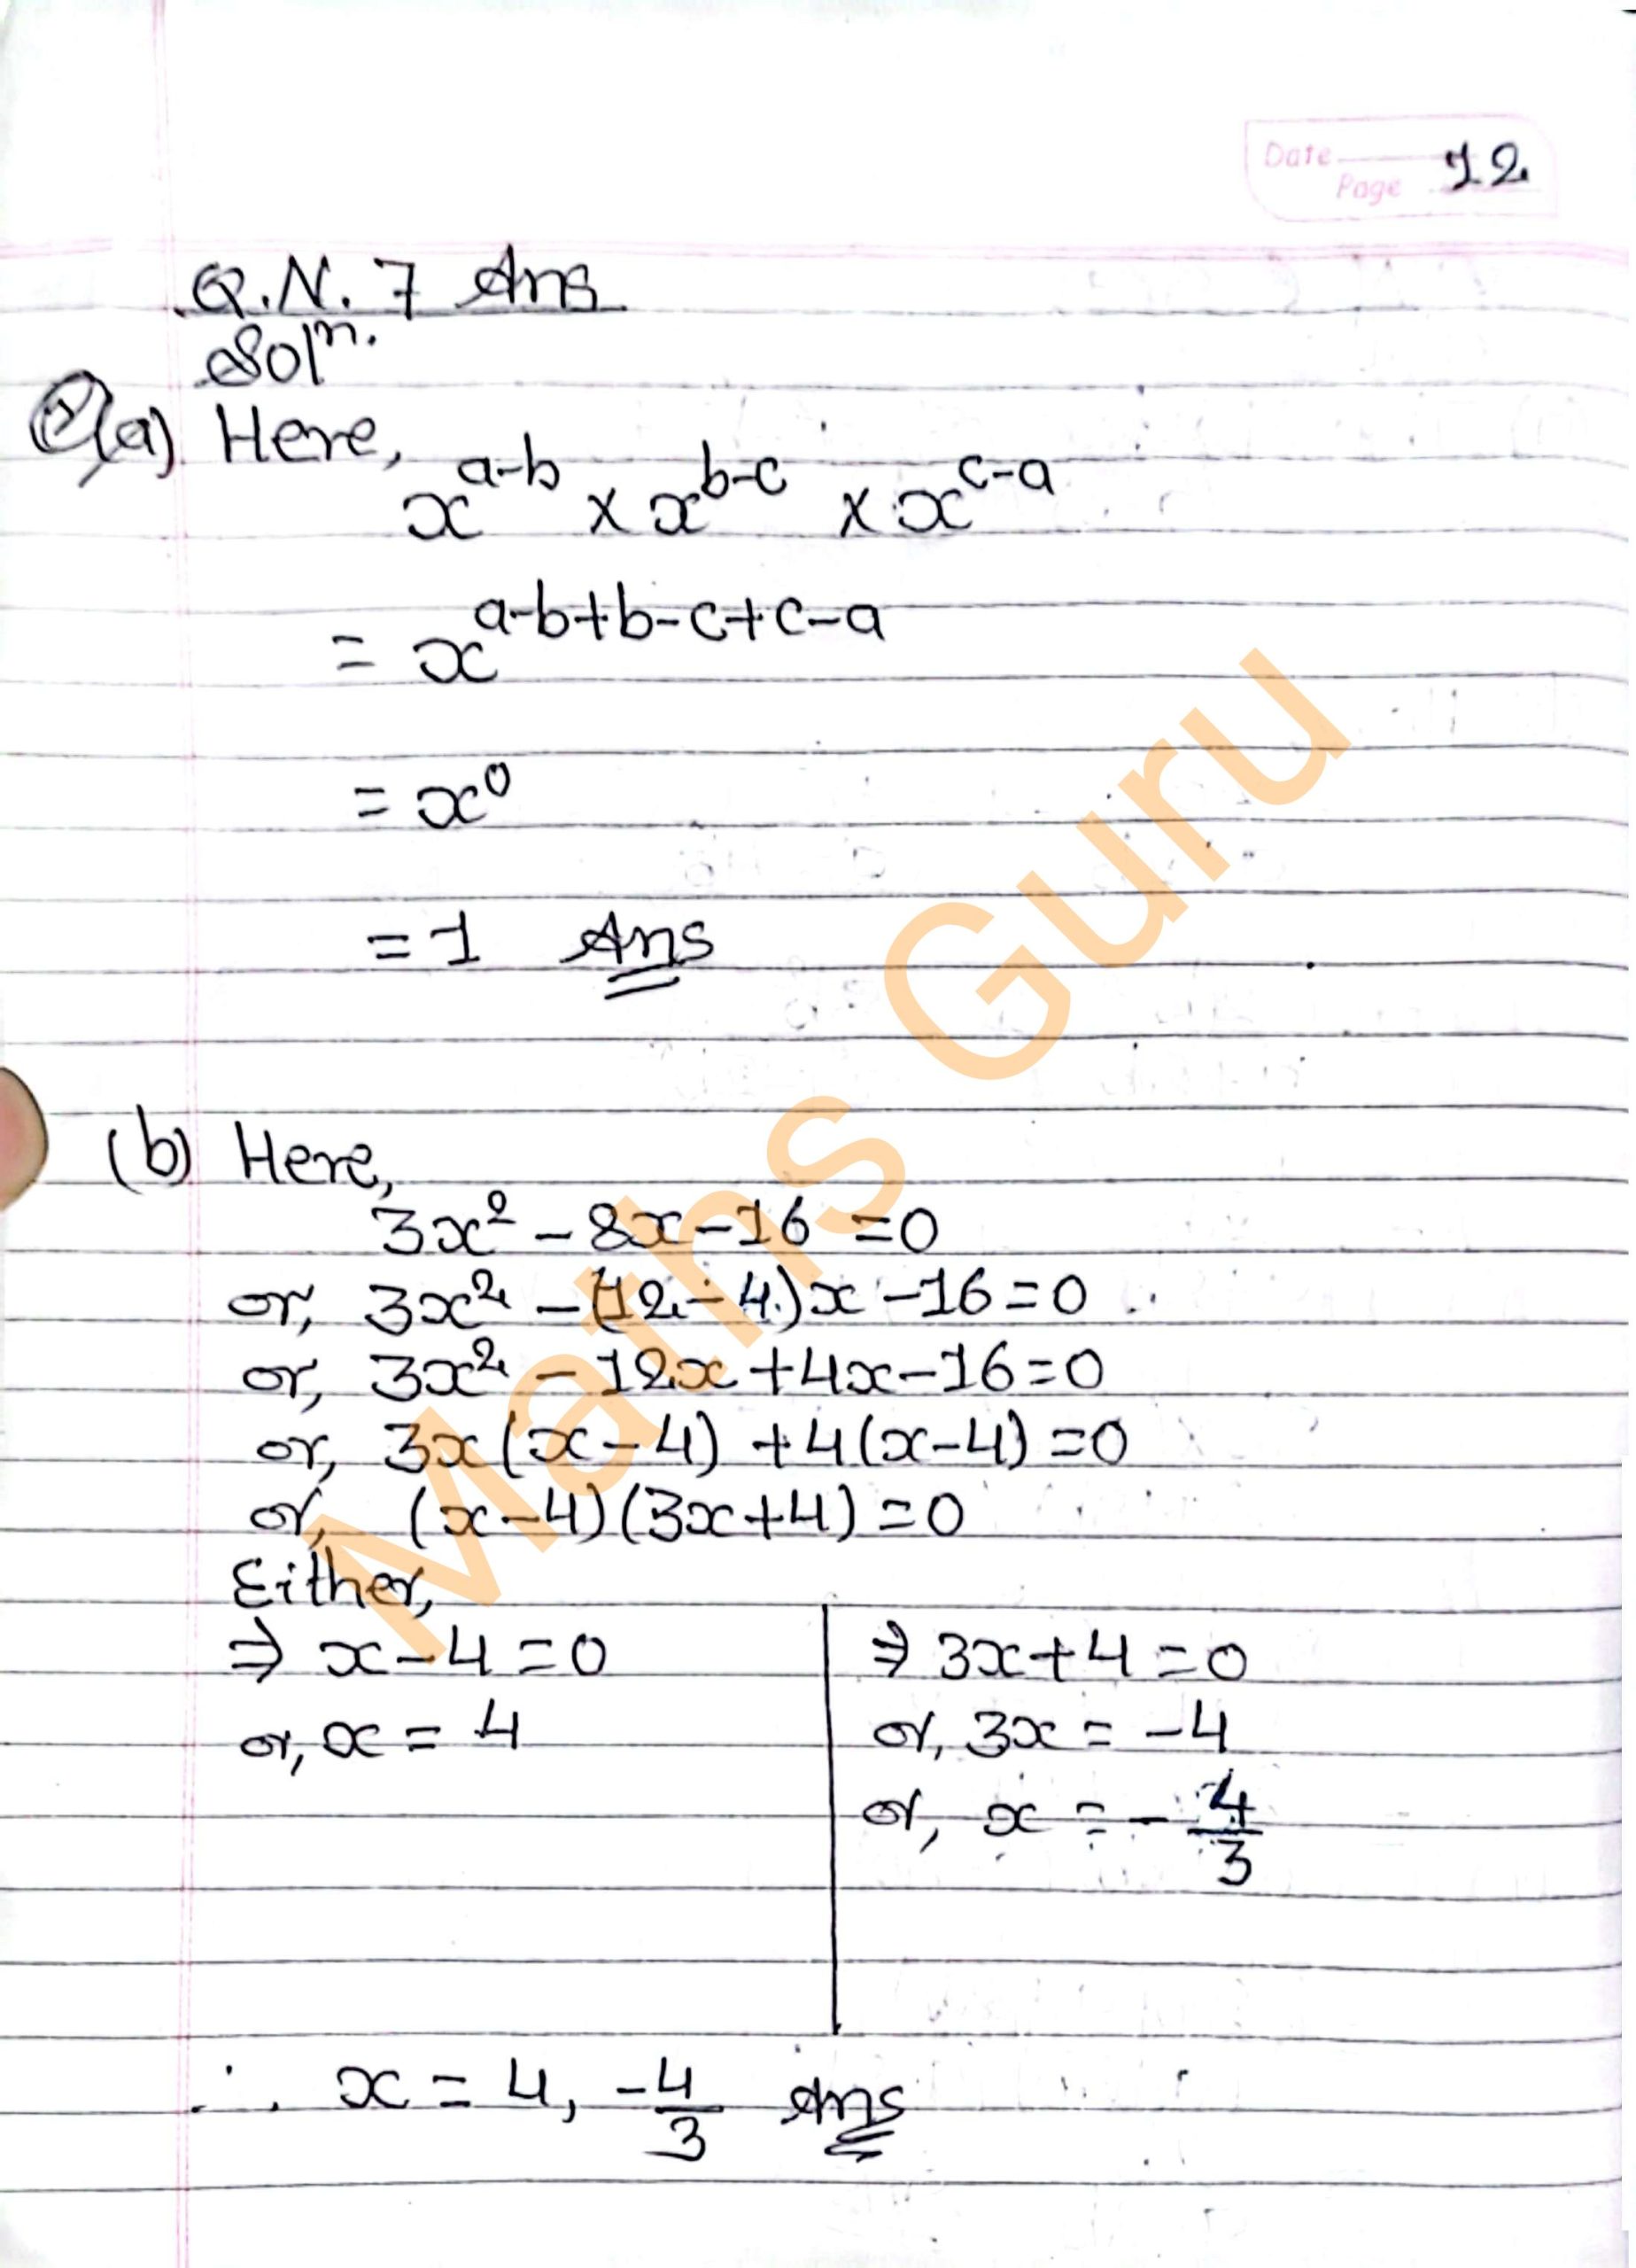 Date
Page 12
Q.N. 7 Ans
Solⁿ.
(a) Here,
x^(a-b) × x^(b-c) × x^(c-a)
= x^(a-b+b-c+c-a)
= x⁰
= 1 Ans
(b) Here,
3x² - 8x - 16 = 0
or, 3x² - (12 - 4)x - 16 = 0
or, 3x² - 12x + 4x - 16 = 0
or, 3x(x-4) + 4(x-4) = 0
or, (x-4)(3x+4) = 0
Either,
⇒ x - 4 = 0
or, x = 4
⇒ 3x + 4 = 0
or, 3x = -4
or, x = -4/3
∴ x = 4, -4/3 Ans
Maths Guru